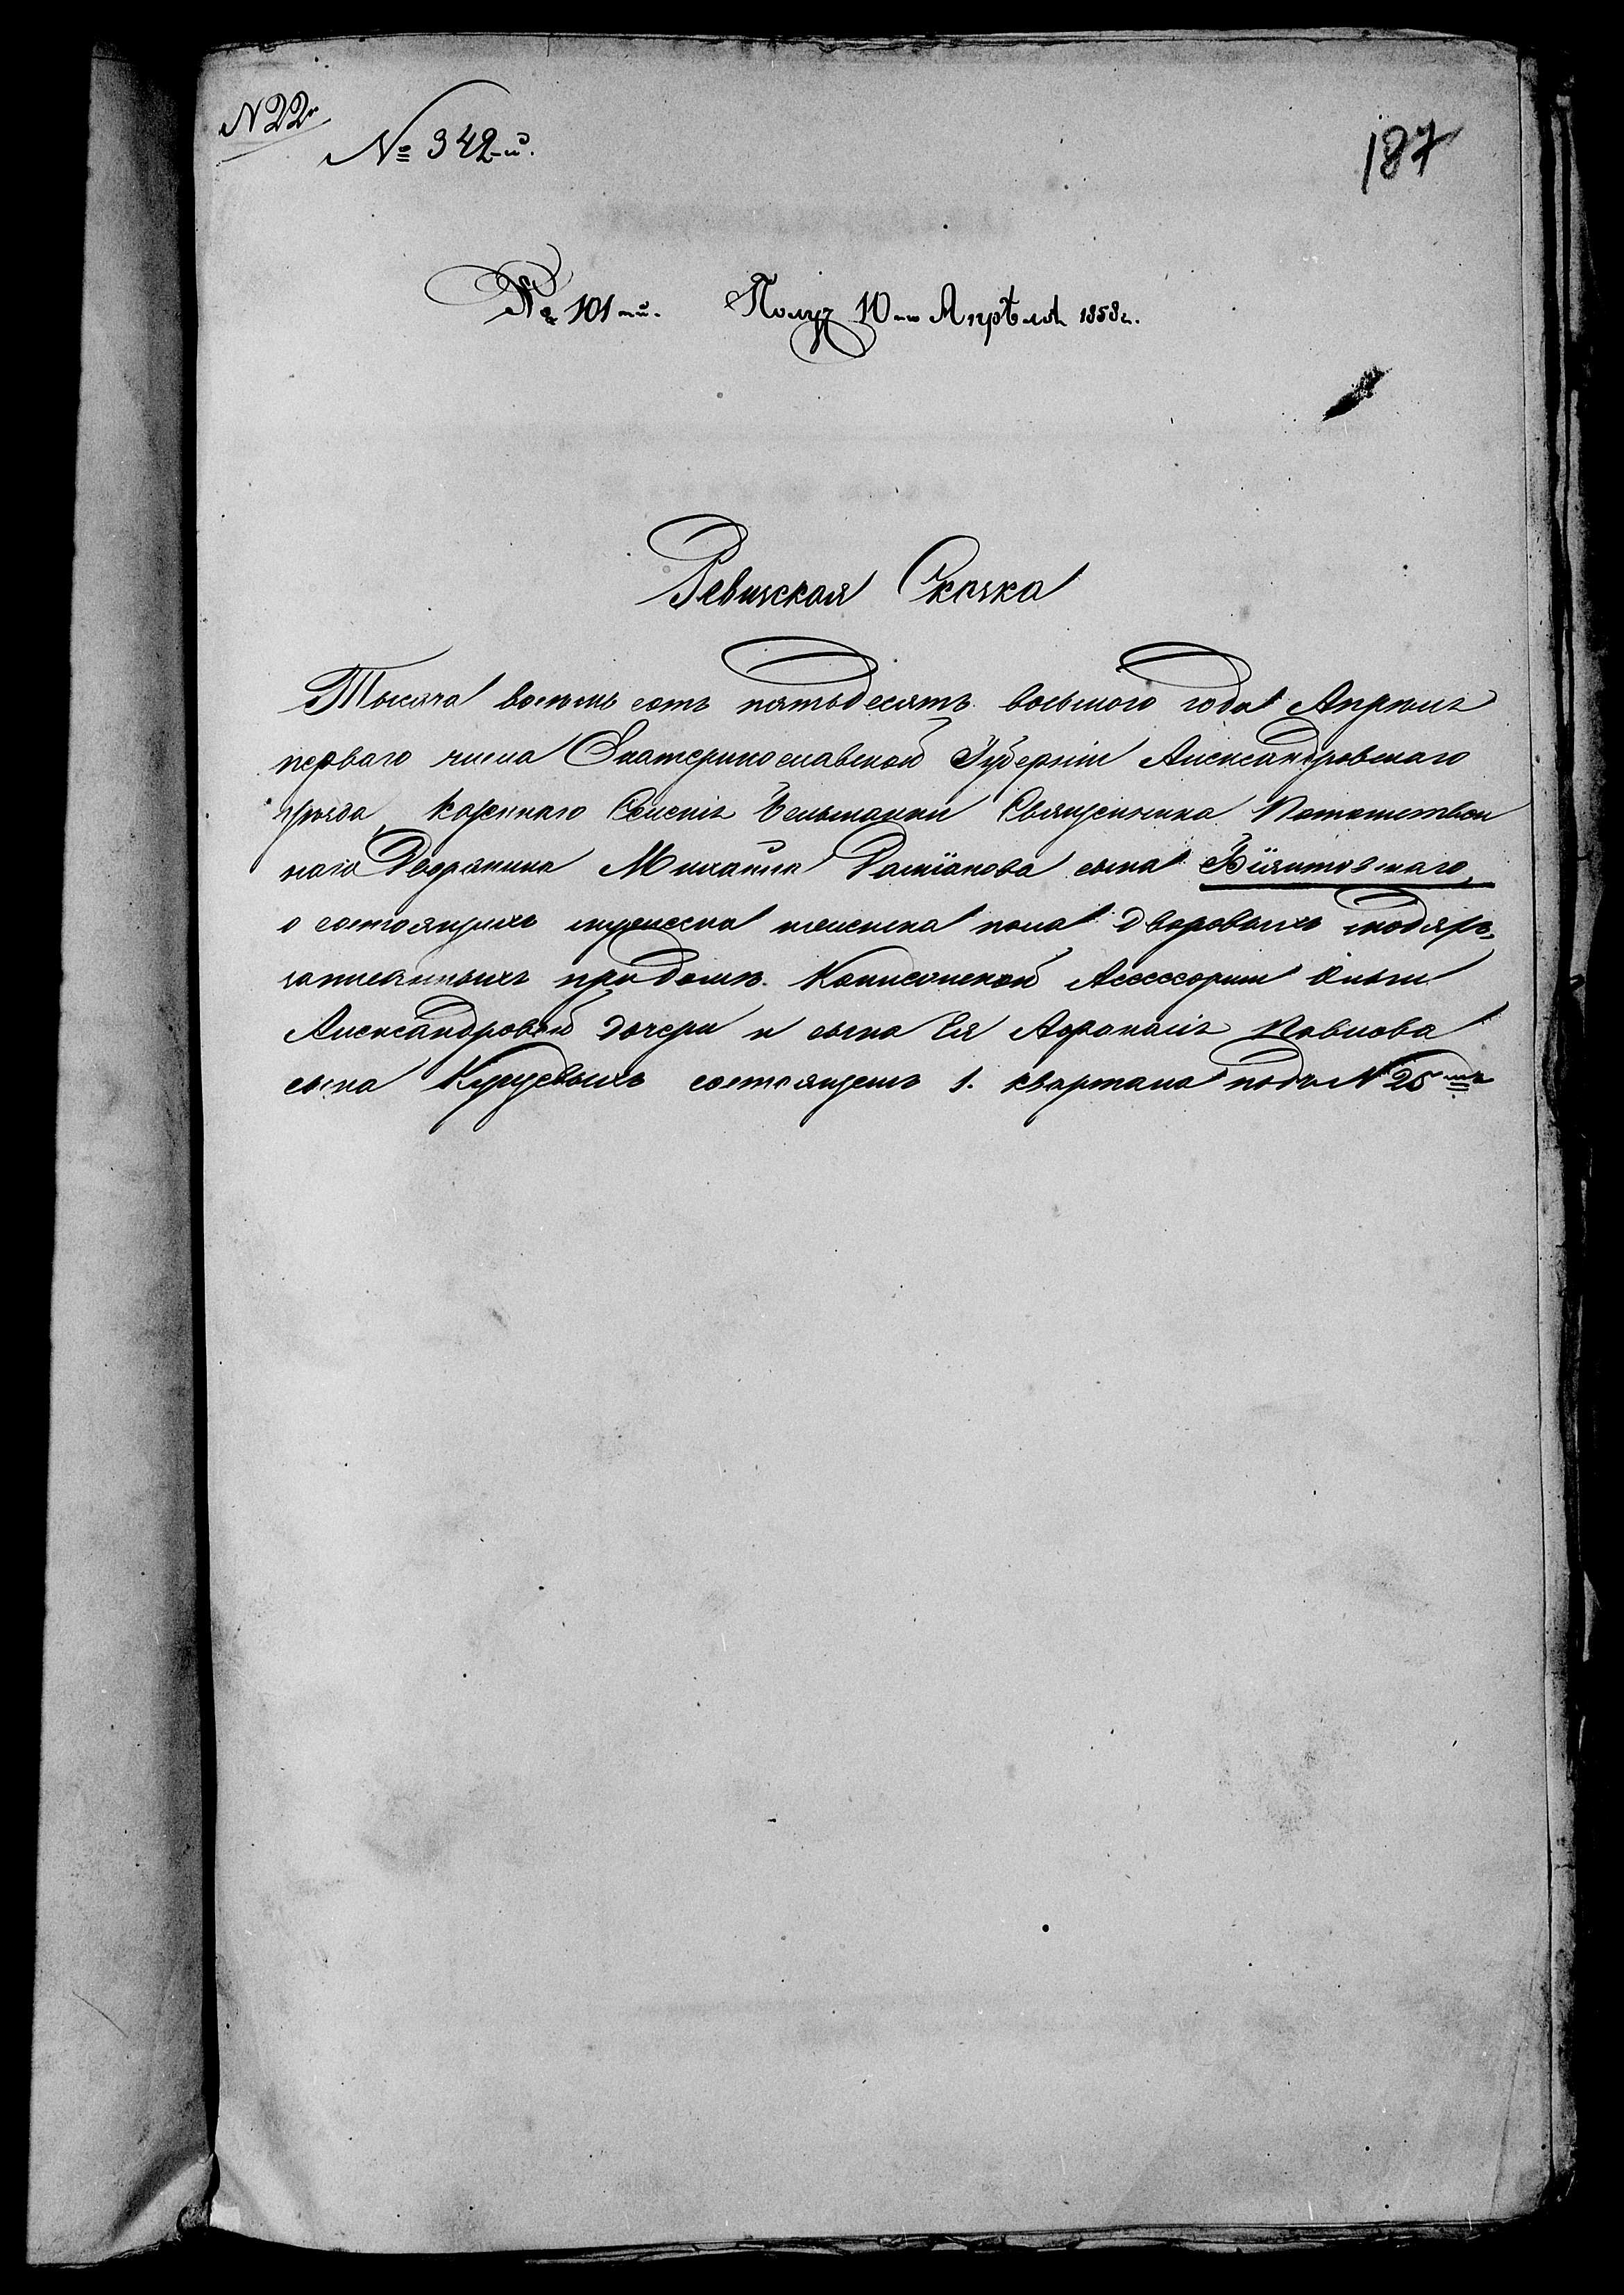 N 22.
№ 342-й.
187
№ 101-й. Получ 10-го Апрѣля 1858 г.
Ревизская Сказка
Тысяча восемь сотъ пятьдесятъ восьмого года Апрѣля
перваго числа Екатеринославской Губерніи Александровскаго
уѣзда, Казеннаго Селенія Бельманки Священника Потомствен
наго Дворянина Михаила Даміанова сына
о состоящихъ мужеска женска пола дворовыхъ людяхъ,
записанныхъ при домѣ Коллежской Ассесорши Ольги
Александровой дочери и сына Ея Афанасія Павлова
сына Куцевыхъ состоящемъ 1. квартала подъ N 25-мъ